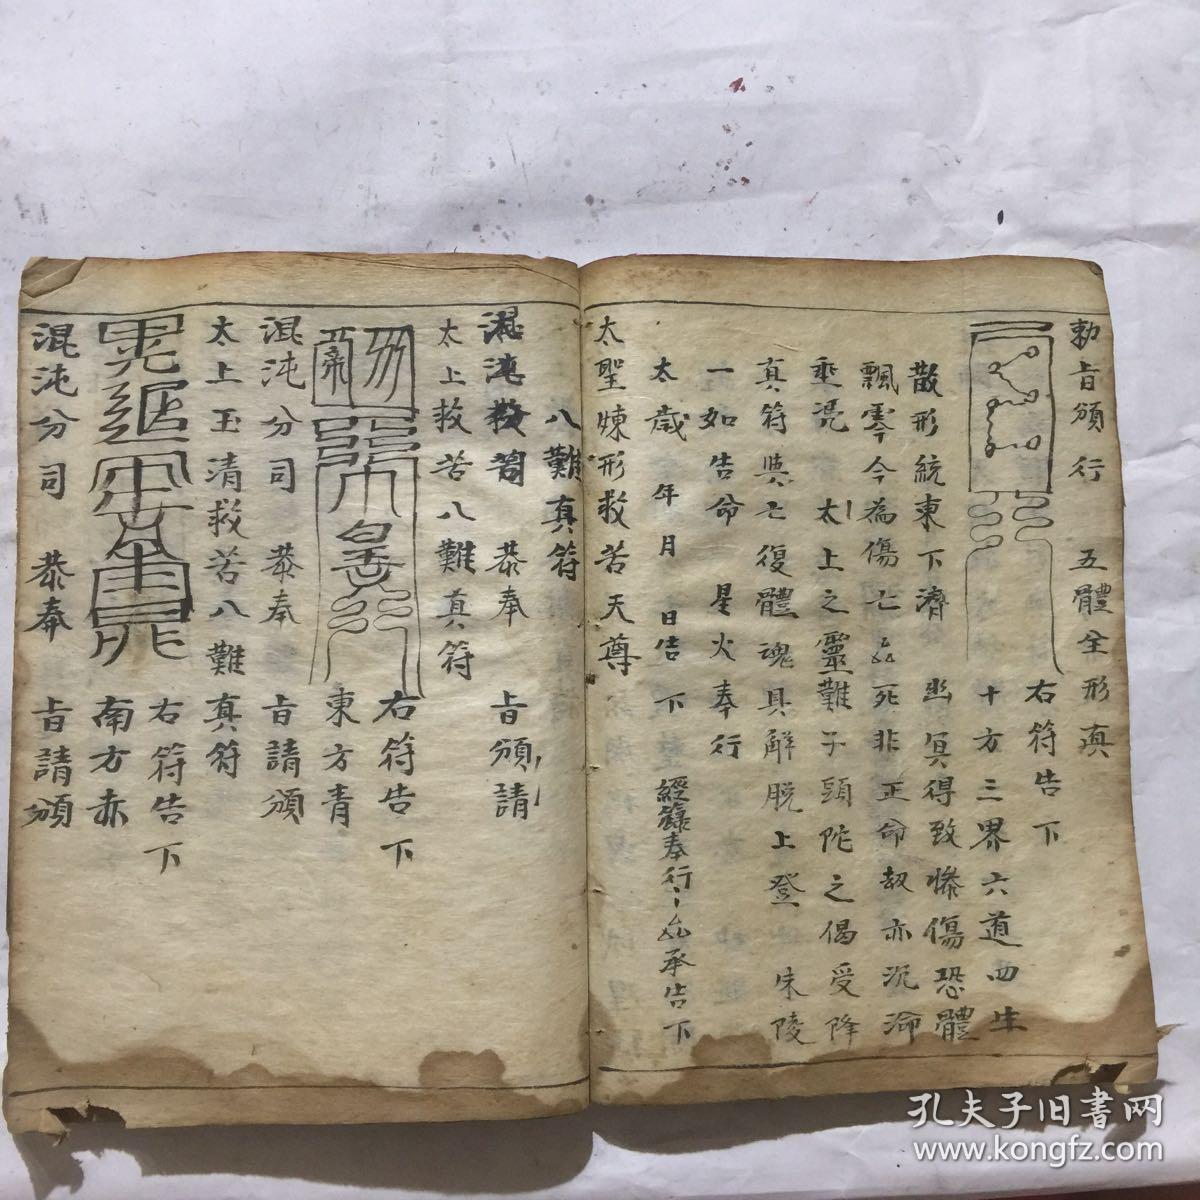 勅旨頒行 五體全形真
右符告下
十方三界六道四生
散形統東下濟 幽冥得致慘傷恐體
飄零今為傷亡 死非正命劫亦沉淪
垂憑 太上之靈難子頭陀之偈受降
真符與亡復體魂具解脱上登 朱陵
一如告命 星火奉行
太歲 年月 日告下 經籙奉行 承告下
太聖煉形救苦天尊
八難真符
混沌 恭奉 旨頒請
太上救苦八難真符
右符告下
東方青
混沌分司 恭奉 旨請頒
太上玉清救苦八難真符
右符告下
南方赤
混沌分司 恭奉 旨請頒
孔夫子旧书网
www.kongfz.com